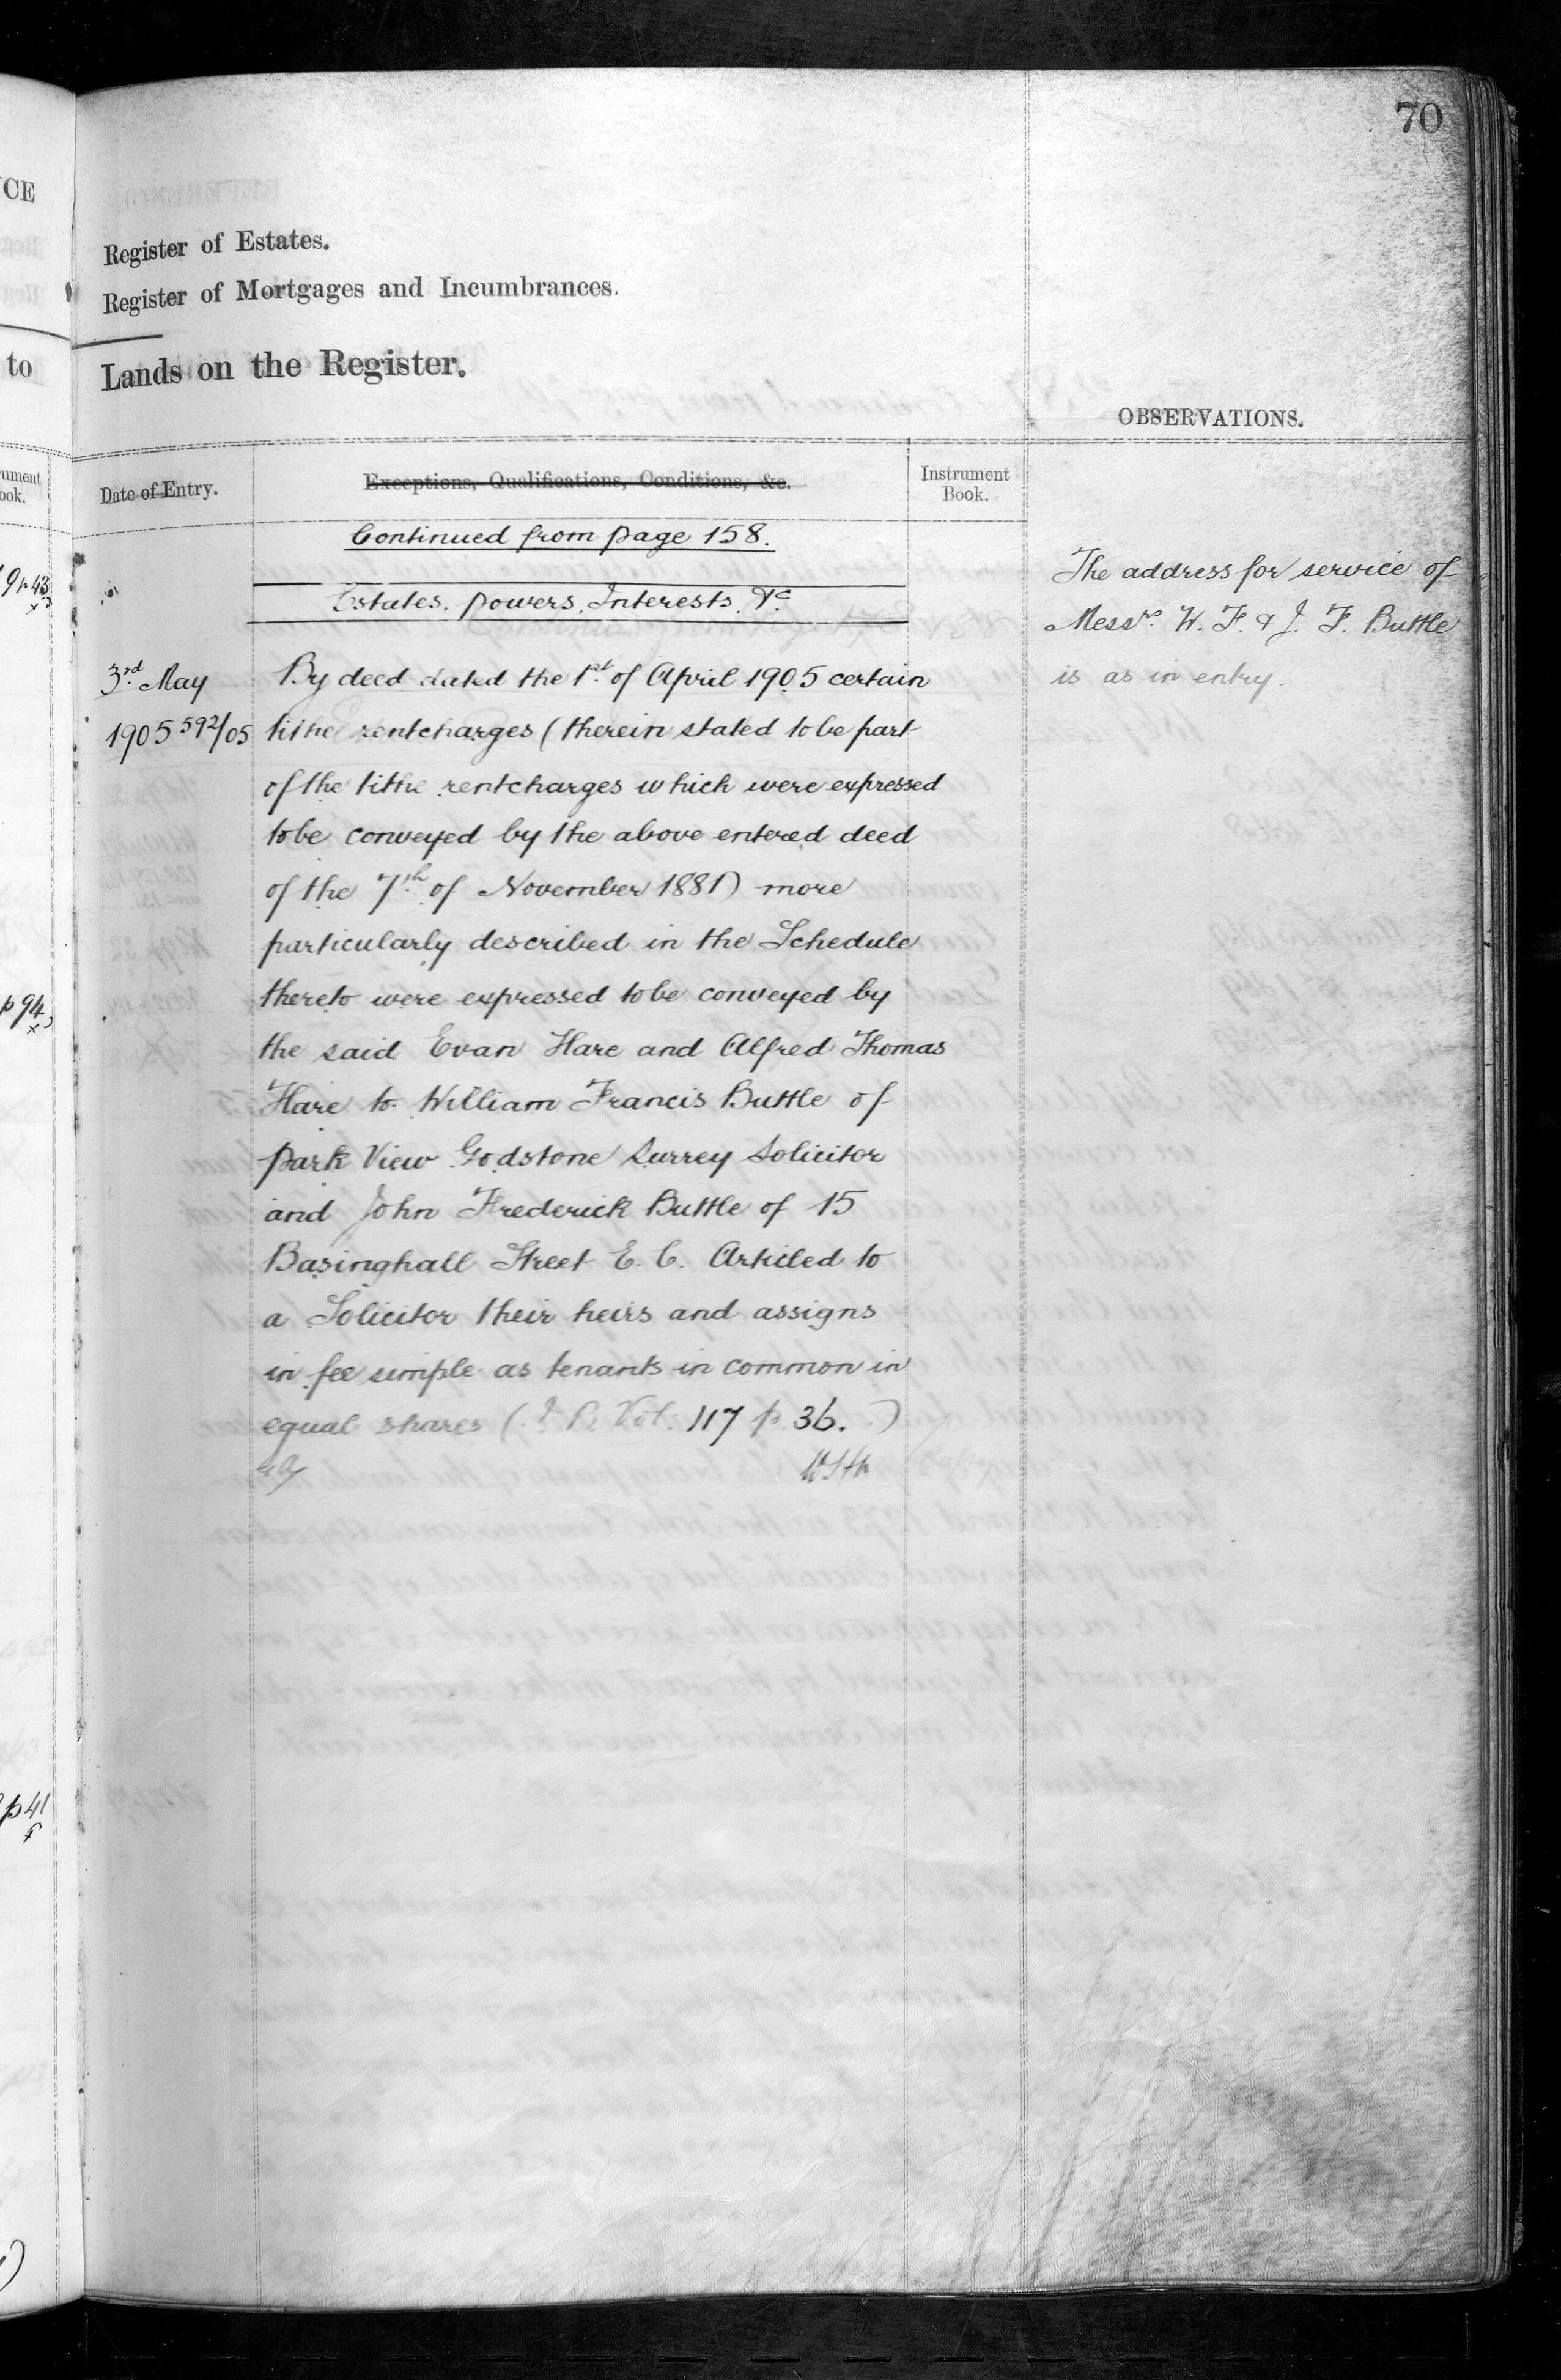 70
Register of Estates.
Register of Mortgages and Incumbrances.
Lands on the Register.
OBSERVATIONS.
Date of Entry.
Exceptions, Qualifications, Conditions, &c.
Instrument
Book.
Continued from page 158.
Estates. powers. Interests. &c
3rd May
1905 592/05
By deed dated the 1st of April 1905 certain
tithe rentcharges (therein stated to be part
of the tithe rentcharges which were expressed
to be conveyed by the above entered deed
of the 7th of November 1881) more
particularly described in the Schedule
thereto were expressed to be conveyed by
the said Evan Hare and Alfred Thomas
Hare to William Francis Buttle of
park View Godstone Surrey Solicitor
and John Frederick Buttle of 15
Basinghall Street E. C. Articled to
a Solicitor their heirs and assigns
in fee simple as tenants in common in
equal shares (I. B. Vol: 117 p. 36.)
The address for service of
Messrs. W. F. & J. F. Buttle
is as in entry.
CE
to
ument
ook.
9p43
p94
p41